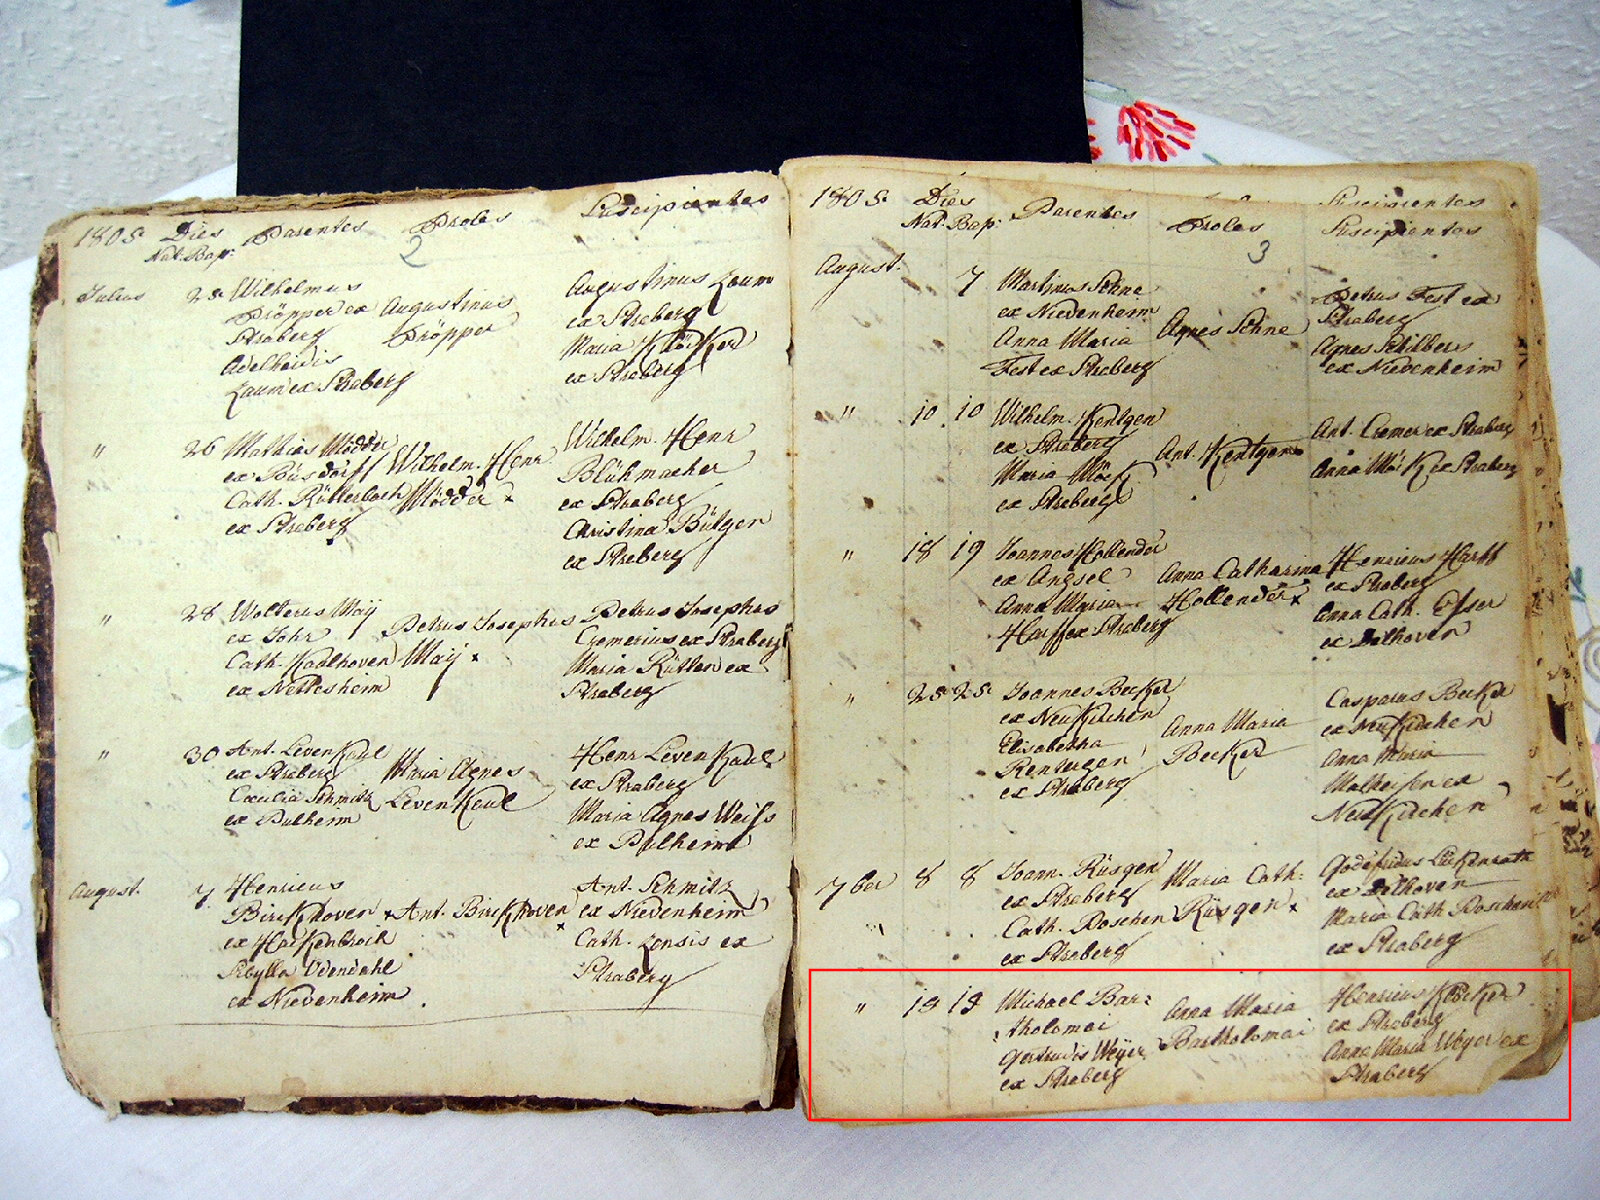 1805 Dies Parentes Proles Suscipientes
Nat. Bap. 2
Julius 25 Wilhelmus
Pröpper ex Augustinus
Straberg Pröpper
Adelheidis
Zaum ex Straberg
Augustinus Zaum
ex Straberg
Maria
ex Straberg
" 26 Mathias Mödder
ex Büsdorff Wilhelm. Henr.
Cath. Rütterbach Mödder
ex Straberg
Wilhelm. Henr.
Blühmacher
ex Straberg
Christina Bütgen
ex Straberg
" 28 Wolterus Maÿ
ex Fohr Petrus Josephus
Cath. Kaulhoven Maÿ
ex Nettesheim
Petrus Josephus
Cremerius ex Straberg
Maria Rütten ex
Straberg
" 30 Ant. LevenKaul
ex Straberg Maria Agnes
Cæcilia Schmitz LevenKaul
ex Pulheim
Henr. LevenKaul
ex Straberg
Maria Agnes Weiss
ex Pulheim
August. 7 Henricus
Birckhoven Ant. Birckhoven
ex Hackenbroich
Sibylla Odendahl
ex Niedenheim
Ant. Schmitz
ex Niedenheim
Cath. Zonsis ex
Straberg
1805 Dies Parentes Proles Suscipientes
Nat. Bap. 3 Suscipientes
August. 7 Martinus Schne
ex Niedenheim
Anna Maria Agnes Schne
Fest ex Straberg
Petrus Fest ex
Straberg
Agnes Schilbers
ex Niedenheim
" 10 10 Wilhelm. Kentgen
ex Straberg Ant. Kentgen
Maria Möck
ex Straberg
Ant. Cremer ex Straberg
Anna MöcK ex Straberg
" 18 19 Joannes Hollender
ex Angsel Anna Catharina
Anna Maria Hollender
Harff ex Straberg
Henricus Harff
ex Straberg
Anna Cath. Esser
ex Delhoven
" 25 25 Joannes Becker
ex Neukirchen Anna Maria
Elisabetha Becker
Rentergen
ex Straberg
Casparus Becker
ex Neukirchen
Anna Maria
Matheisen ex
Neukirchen
7ber 8 8 Joann. Rüsgen Maria Cath.
ex Straberg
" Cath. Roschen Rüsgen
ex Straberg
Godefridus Lückenrath
ex Delhoven
Maria Cath. Roschen
ex Straberg
" 18 18 Michael Bar=
tholomai Anna Maria
Gertrudis Weÿer Bartholomai
ex Straberg
Henricus
ex Straberg
Anna Maria Weyer ex
Straberg